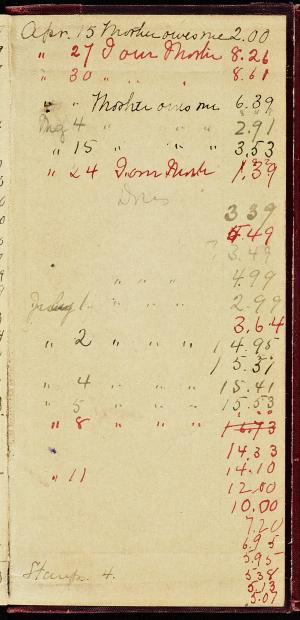 Apr. 15 Mother owes me 2.00
" 27 I owe Mother 8.26
" 30 " " " 8.61
" " Mother owes me 6.39
4 " " " 2.91
" 15 " " " 3.53
" 24 I owe Mother 1.39
3 39
4.49
3.49
" " " 4.99
July 1. " " " 2.99
3.64
" 2 " " " 14.95
15.31
" 4 " " " 15.41
" 5 " " " 15.53
" 8 " " " 16.73
14.33
" 11 14.10
12.00
10.00
7.20
6.95
5.95
Stamps. 4. 5.38
5.13
5.07